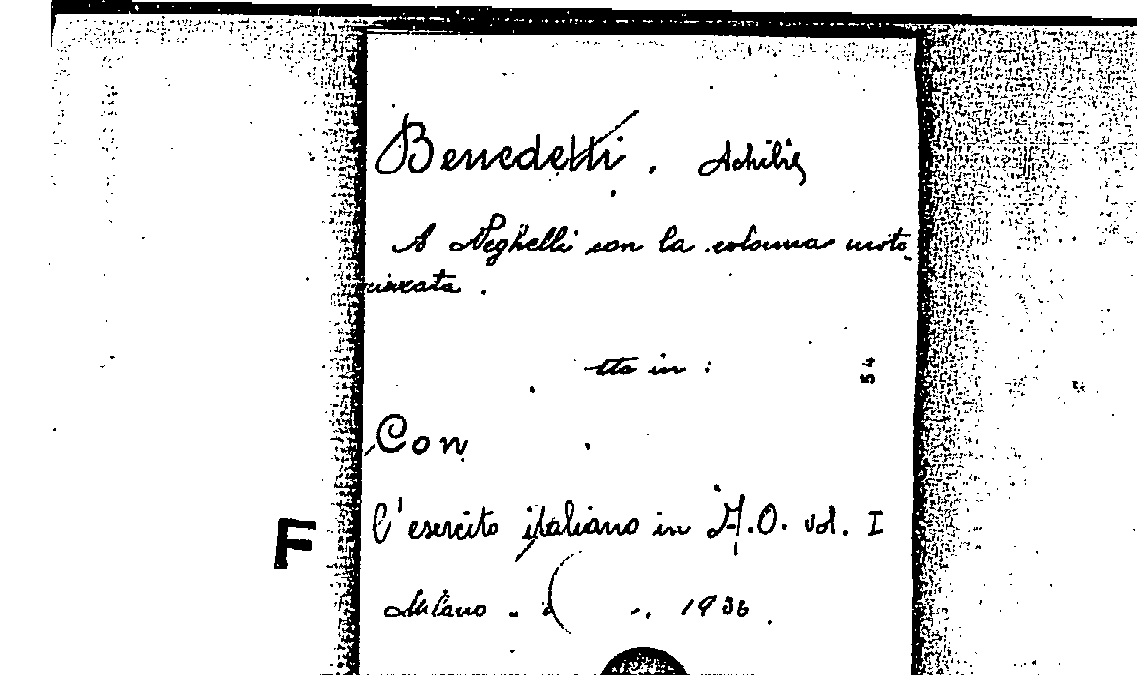 Benedetti. Achille
A Neghelli con la colonna moto
rizzata.
sta in:
54
Con
l'esercito italiano in A.O. vol. I
F
Milano 1936.